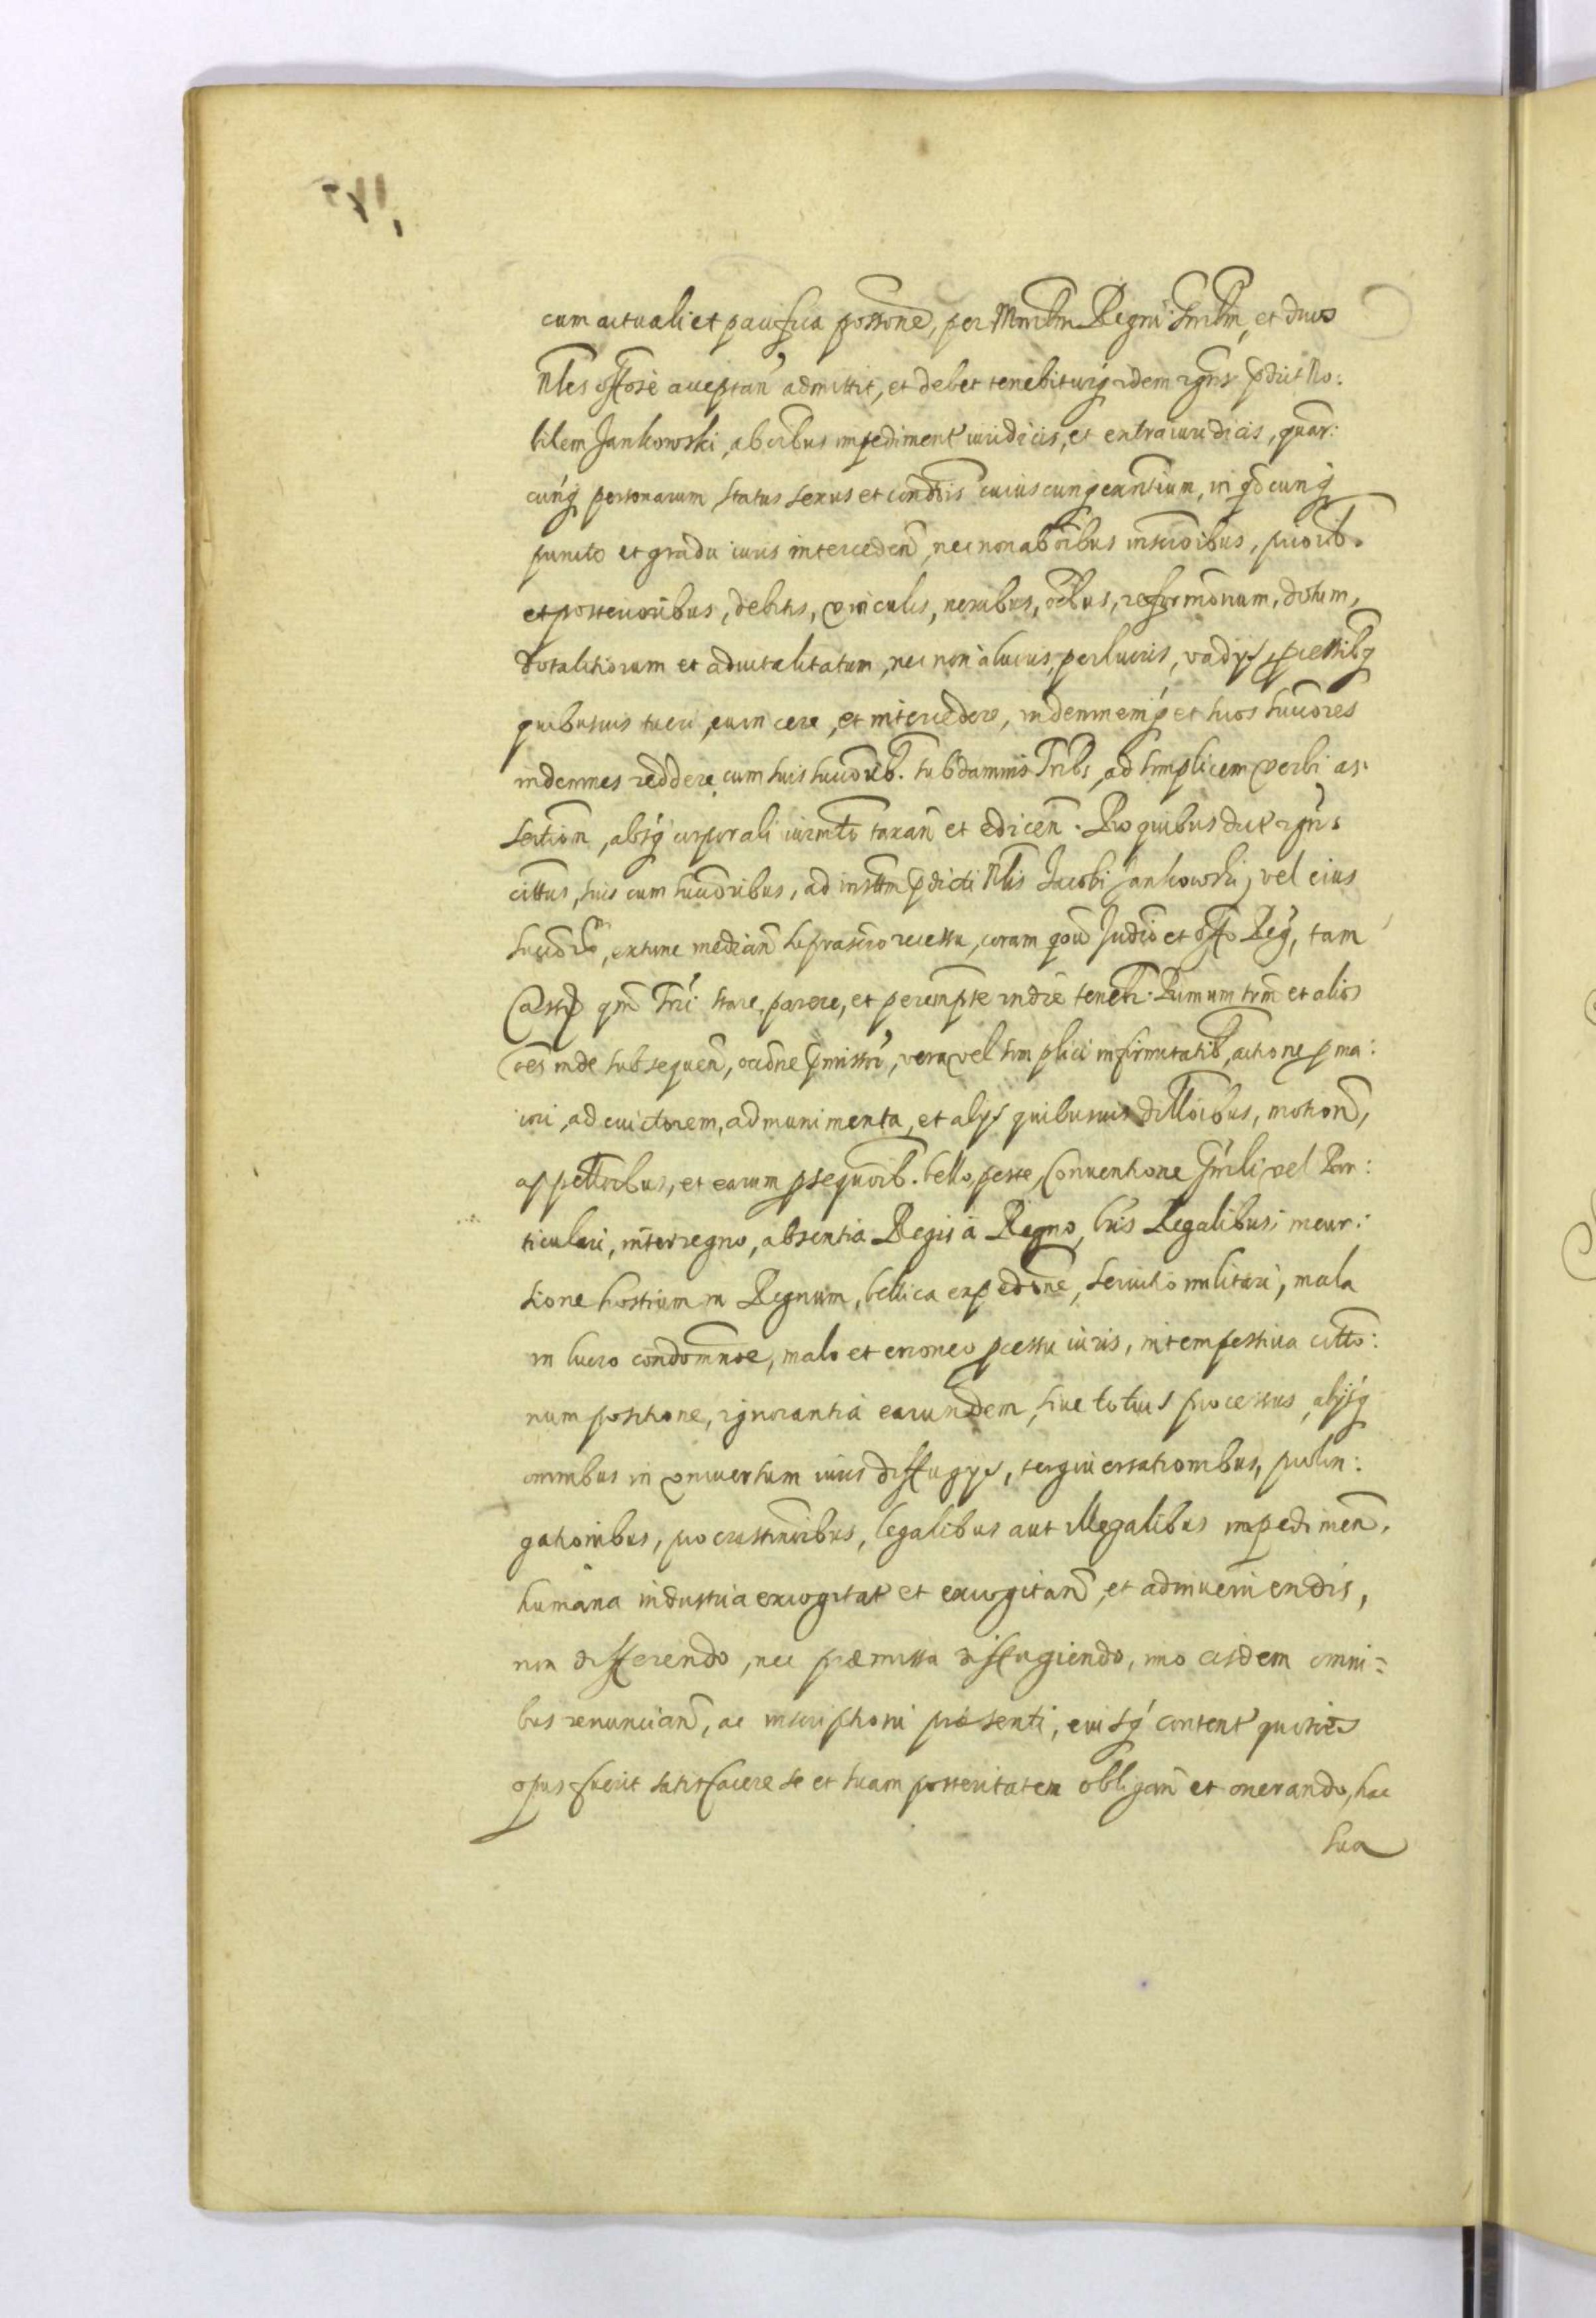 cum actuali et pacifica possone, per Mnrlem Regni Gnrlem, et duos
Nles offose acceptan admittit, et debet tenebiturq idem rgnr pdict No:
bilem Jankowski, ab oibus impediment iuridicis, et extraiuridicis, quar:
cunq personarum status sexus et condōis cuiuscunq exntium, in qdcunq
puncto et gradu iuris interceden, nec non ab oibus inscrōibus, priorib.
et posterioribus, debitis, vinculis, nexibus, oēibus, reformōnum, dotum,
dotalitiorum et aduitalitatum, nec non à lucris, perlucris, vadijs, pcessibq
quibusuis tueri, euincere, et intercedere, indemnemq et suos succores
indemnes reddere, cum suis succorib. sub damnis Tribs, ad simplicem verbi as:
sertion, absq corporali iurmto taxan et edicen. Pro quibus dict rgnr
cittus, suis cum succoribus, ad instm pdicti Nlis Jacobi Jankowski, vel eius
succorū, extunc median se prascrō recessu, coram qouis Judiō et offō Reg, tam
Castr qm Tri stare, parere, et perempte indie teneb. Pumum trm et alios
oēs inde subsequen, ocōne pmissor, vera vel simplici infirmitatib, actione p ma:
iori, ad euictorem, ad munimenta, et alijs quibusuis dillōibus, motion,
appellōibus, et earum psequōib. bello, peste, Conuentione Gnrli vel Par:
ticulari, interregno, absentia Regis à Regno, lris Regalibus, incur:
sione hostium in Regnum, bellica expedōne, seruitio militari, mala
in lucro condemnoe, malo et erroneo pcessu iuris, intempestiua citto:
num positione, ignorantia earundem, siue totius processus, alijsq
omnibus in vniuersum iuris diffugijs, tergiuersationibus, prolon:
gationibus, procrastinōibus, legalibus aut illegalibus impedimen,
humana industria excogitat et excogitan, et adinueniendis,
non differendo, nec præmissa diffugiendo, imo eisdem omni=
bus renuncian, ac inscriptioni præsenti, eiusq content quoties
opus fuerit satisfacere se et suam posteritatem obligan et onerando, hac
sua